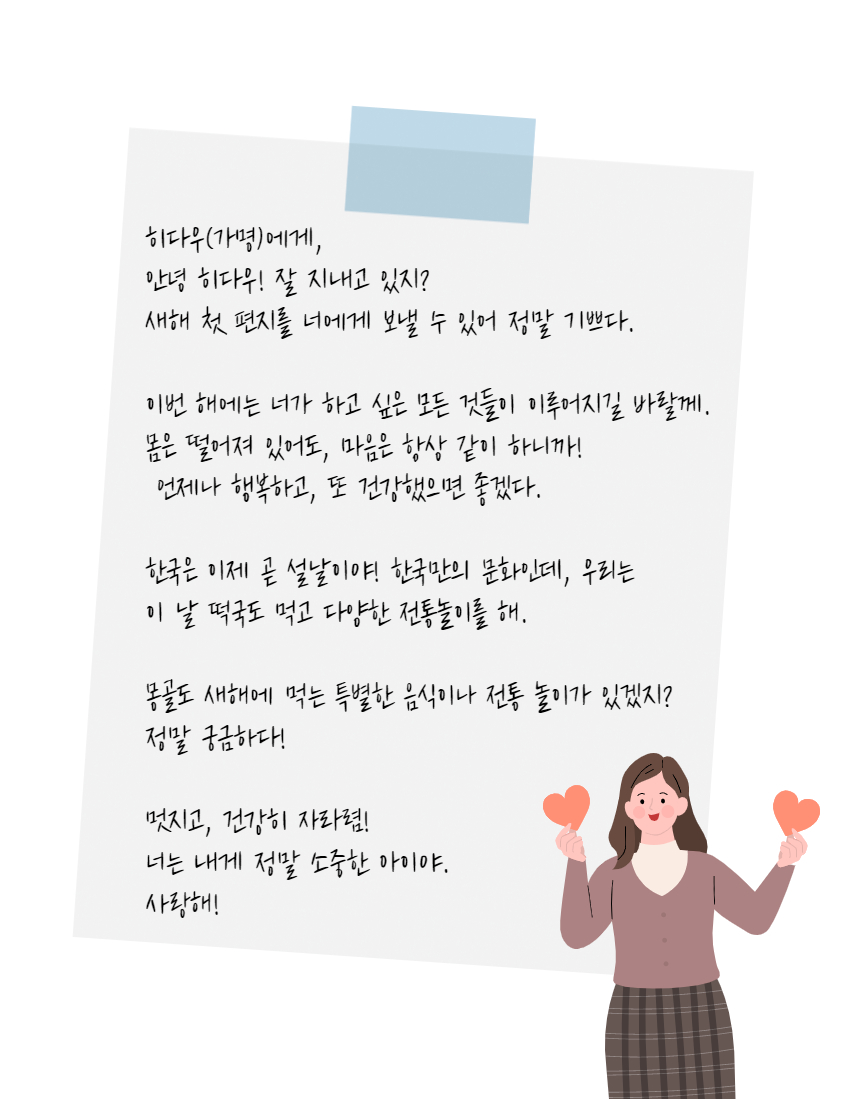 히다우(가명)에게,
안녕 히다우! 잘 지내고 있지?
새해 첫 편지를 너에게 보낼 수 있어 정말 기쁘다.
이번 해에는 너가 하고 싶은 모든 것들이 이루어지길 바랄께.
몸은 떨어져 있어도, 마음은 항상 같이 하니까!
언제나 행복하고, 또 건강했으면 좋겠다.
한국은 이제 곧 설날이야! 한국만의 문화인데, 우리는
이 날 떡국도 먹고 다양한 전통놀이를 해.
몽골도 새해에 먹는 특별한 음식이나 전통 놀이가 있겠지?
정말 궁금하다!
멋지고, 건강히 자라렴!
너는 내게 정말 소중한 아이야.
사랑해!